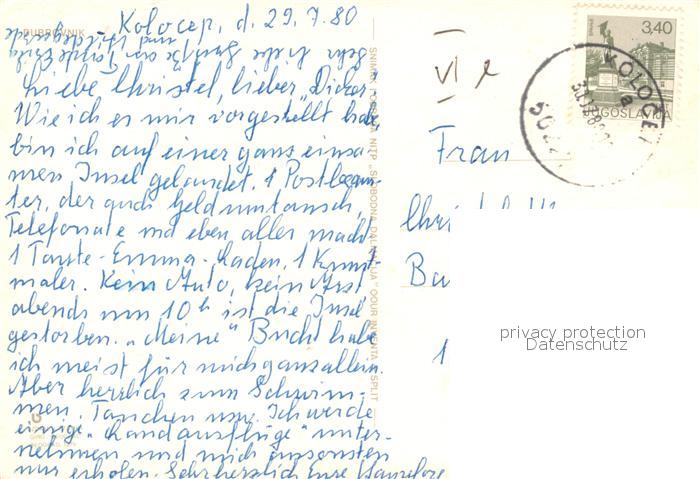 Kolocep, d. 29.7.80
DUBROVNIK
Sehr liebe Grüße an Tante
und
Liebe Christel, lieber "Dicker"
Wie ich es mir vorgestellt habe,
bin ich auf einer ganz einsa-
men Insel gelandet. 1 Postbeam-
ter, der auch Geldumtausch,
Telefonate und eben alles macht
1 Tante-Emma-Laden, 1 Kunst-
maler. Kein Auto, kein Arzt
abends um 10 h ist die Insel
gestorben. "Meine" Bucht habe
ich meist für mich ganz allein.
Aber herrlich zum Schwim-
men, Tauchen usw. Ich werde
einige "Landausflüge" unter-
nehmen und mich ansonsten
nur erholen. Sehr herzlich Eure Hannelore
"SLOBODNA DALMACIJA" OOUR SPLIT
VI e
3,40
JUGOSLAVIJA
KOLOČEP
a
Frau
Chri
Ba
1
privacy protection
Datenschutz